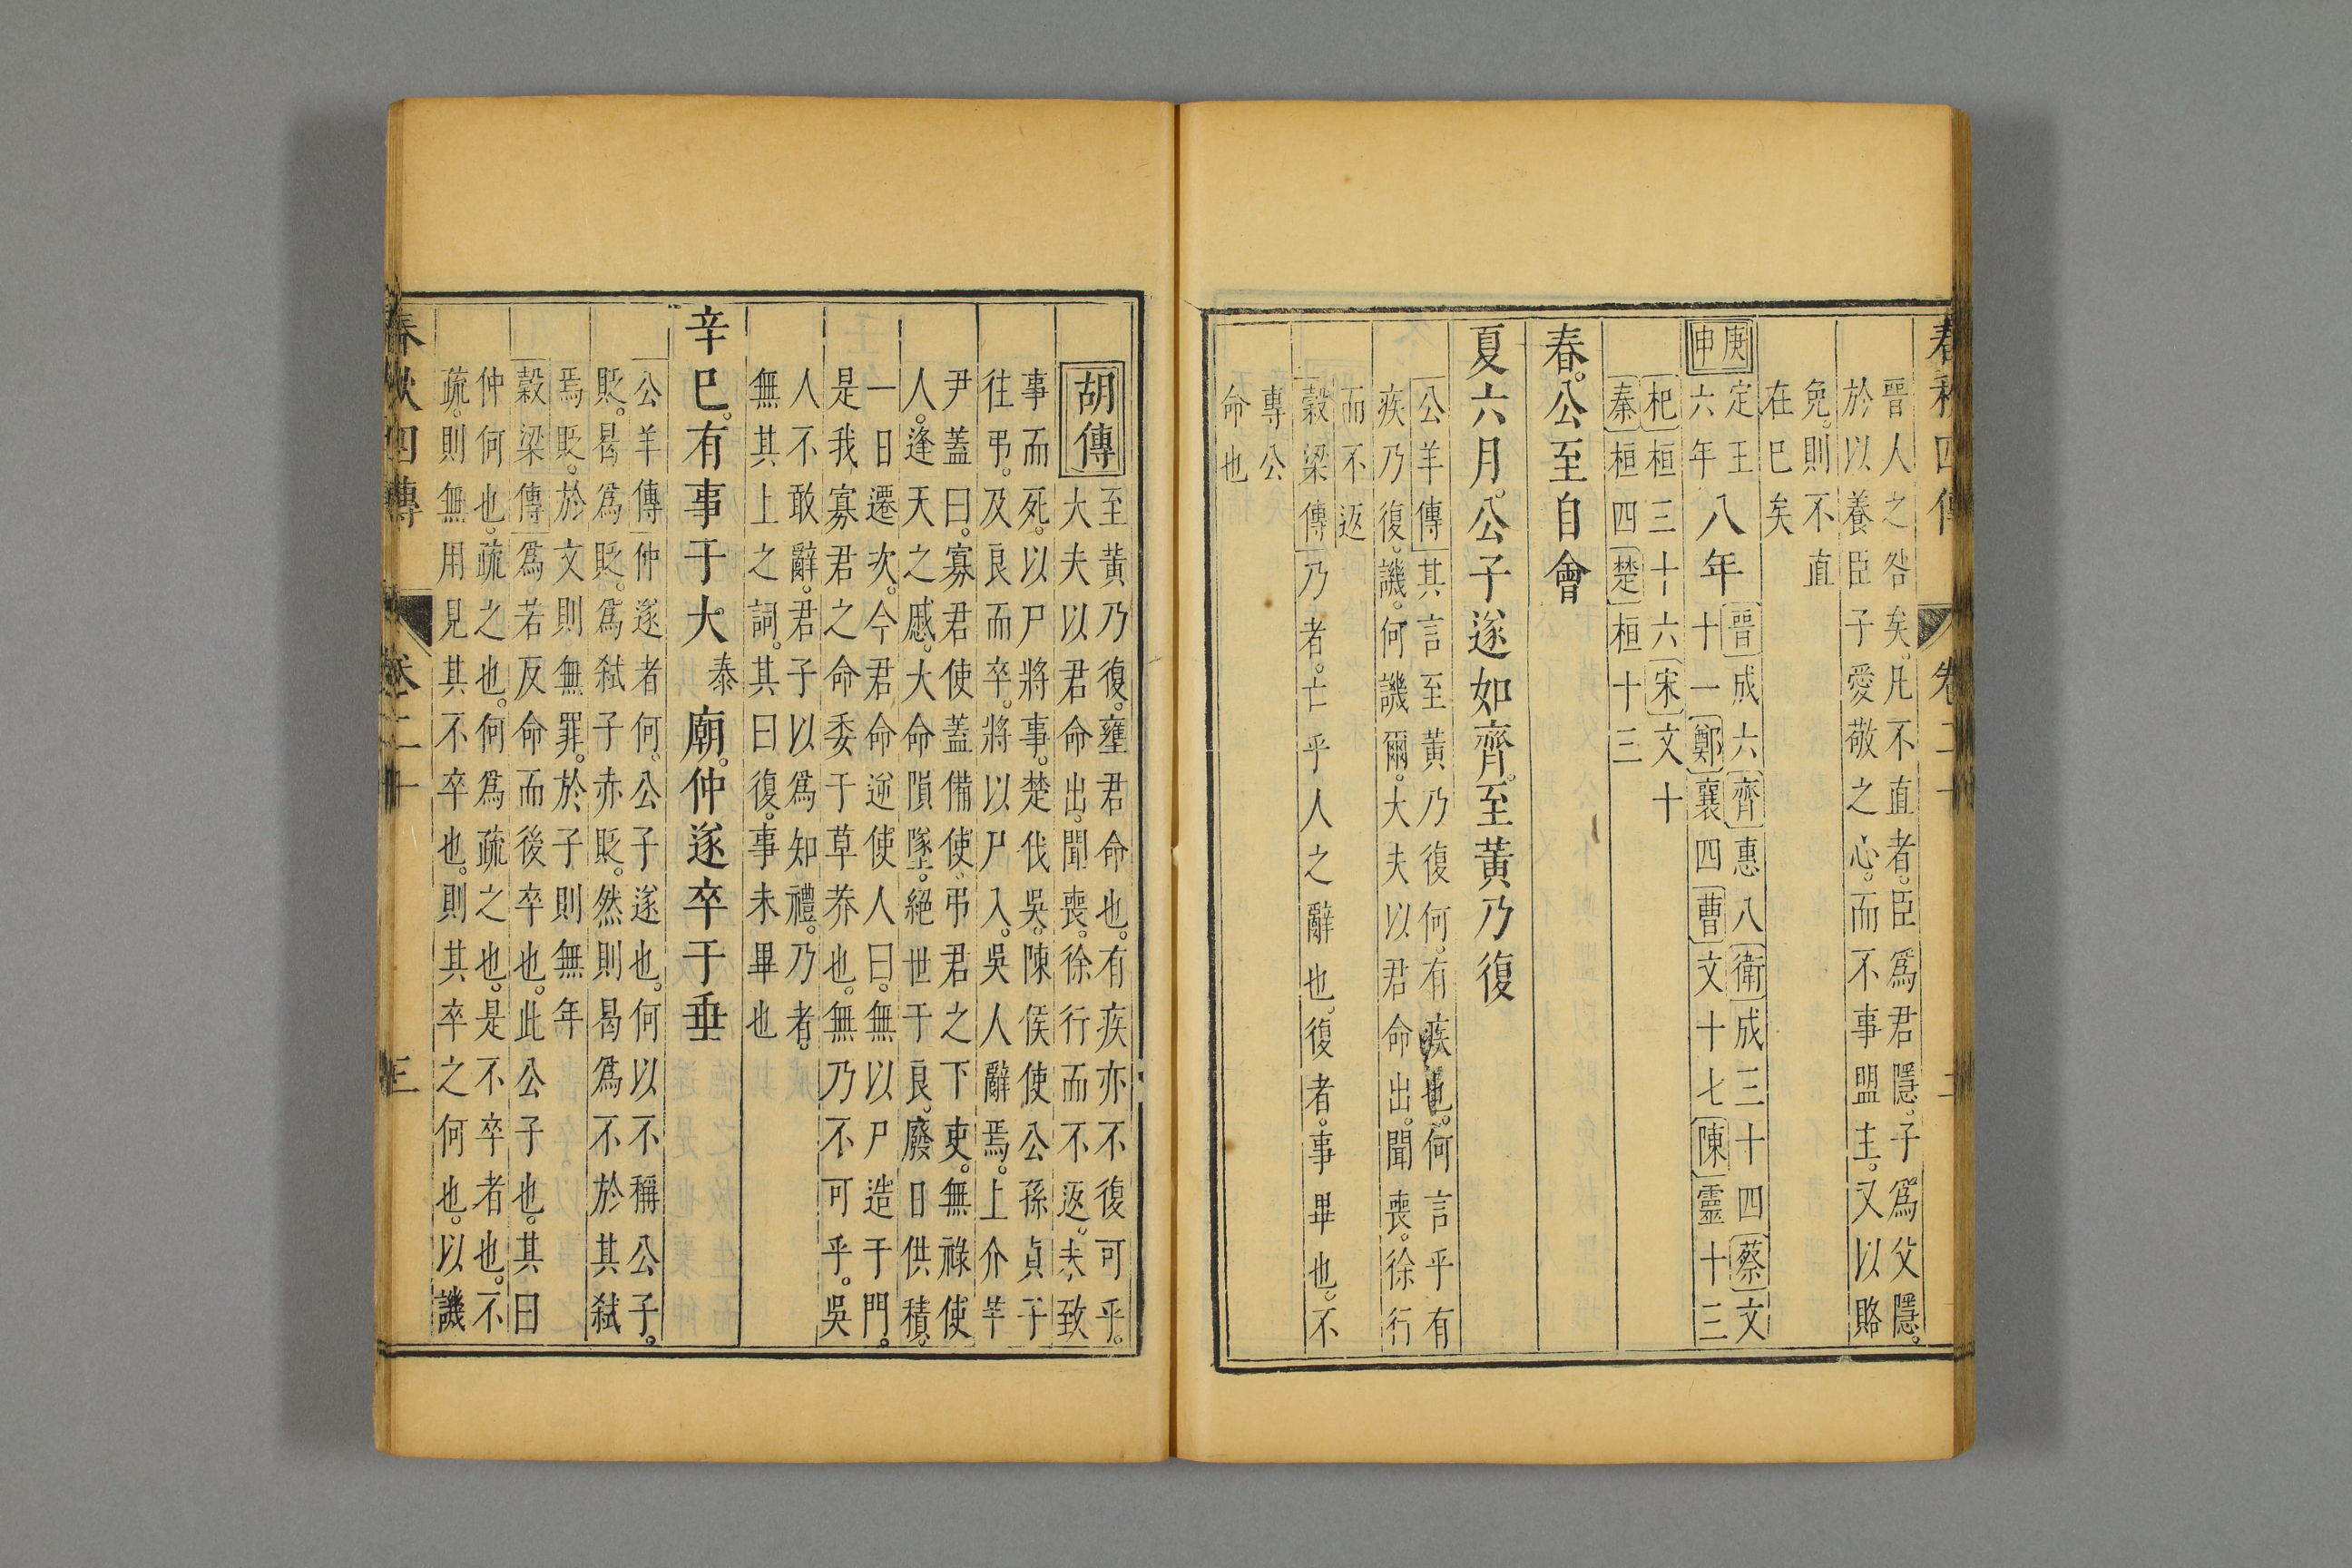 春秋四傳 卷二十 二
晉人之咎矣。凡不直者。臣爲君隱。子爲父隱。
於以養臣子愛敬之心。而不事盟主。又以賂
免。則不直
在巳矣
庚申
定王六年
八年
晉成六齊惠八衛成三十四蔡文
十一鄭襄四曹文十七陳靈十三
杞桓三十六宋文十
秦桓四楚桓十三
春。公至自會
夏六月。公子遂如齊。至黃乃復
公羊傳其言至黃乃復何。有疾也。何言乎有
疾乃復。譏。何譏爾。大夫以君命出。聞喪。徐行
而不返
穀梁傳乃者。亡乎人之辭也。復者。事畢也。不
專公
命也
胡傳
至黃乃復。壅君命也。有疾亦不復可乎。
大夫以君命出。聞喪。徐行而不返。未致
事而死。以尸將事。楚伐吳。陳侯使公孫貞子
往弔。及良而卒。將以尸入。吳人辭焉。上介芊
尹蓋曰。寡君使蓋備使。弔君之下吏。無祿使
人。逢天之慼。大命隕墜。絕世于良。廢日供積。
一日遷次。今君命逆使人曰。無以尸造于門。
是我寡君之命委于草莽也。無乃不可乎。吳
人不敢辭。君子以爲知禮。乃者。
無其上之詞。其曰復。事未畢也
辛巳。有事于大泰廟。仲遂卒于垂
公羊傳仲遂者何。公子遂也。何以不稱公子。
貶。曷爲貶。爲弑子赤貶。然則曷爲不於其弑
焉貶。於文則無罪。於子則無年
穀梁傳爲若反命而後卒也。此公子也。其曰
仲何也。疏之也。何爲疏之也。是不卒者也。不
疏。則無用見其不卒也。則其卒之何也。以譏
春秋四傳 卷二十 三